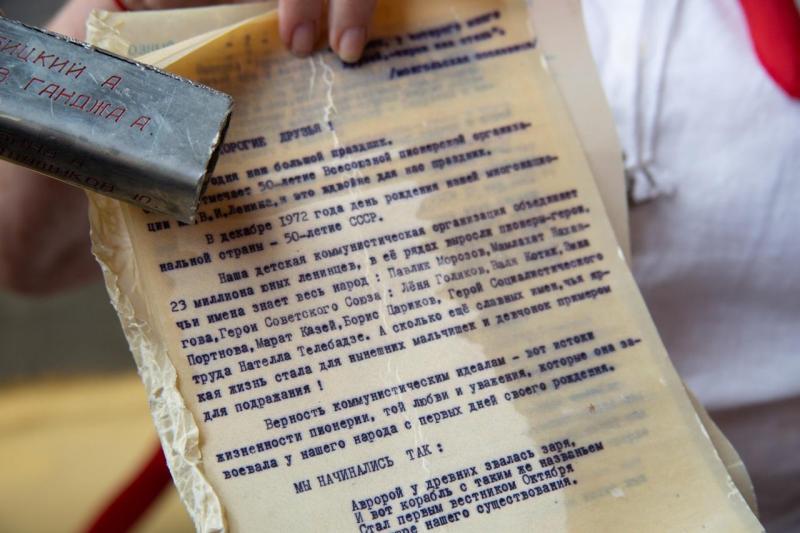 ИЦКИЙ А
ГАНДЖА А.
Ю.
/монгольская пословица/
ДОРОГИЕ ДРУЗЬЯ !
одня наш большой праздник.
тмечает 50-летие Всесоюзной пионерской организа-
ции им.В.И.Ленина,и это вдвойне для нас праздник.
В декабре 1972 года день рождения нашей многонацио-
нальной страны - 50-летие СССР.
Наша детская коммунистическая организация объединяет
23 миллиона юных ленинцев, в её рядах выросли пионеры-герои,
чьи имена знает весь народ : Павлик Морозов, Мамлахат Нахан-
гова,Герои Советского Союза : Лёня Голиков,Валя Котик,Зина
Портнова,Марат Казей,Борис Цариков, Герой Социалистического
труда Нателла Телебадзе. А сколько ещё славных имен,чья яр-
кая жизнь стала для нынешних мальчишек и девчонок примером
для подражания !
Верность коммунистическим идеалам - вот истоки
жизненности пионерии, той любви и уважения, которые она за-
воевала у нашего народа с первых дней своего рождения.
МЫ НАЧИНАЛИСЬ ТАК :
Авророй у древних звалась заря,
И вот корабль с таким же названьем
Стал первым вестником Октября
нашего существования.